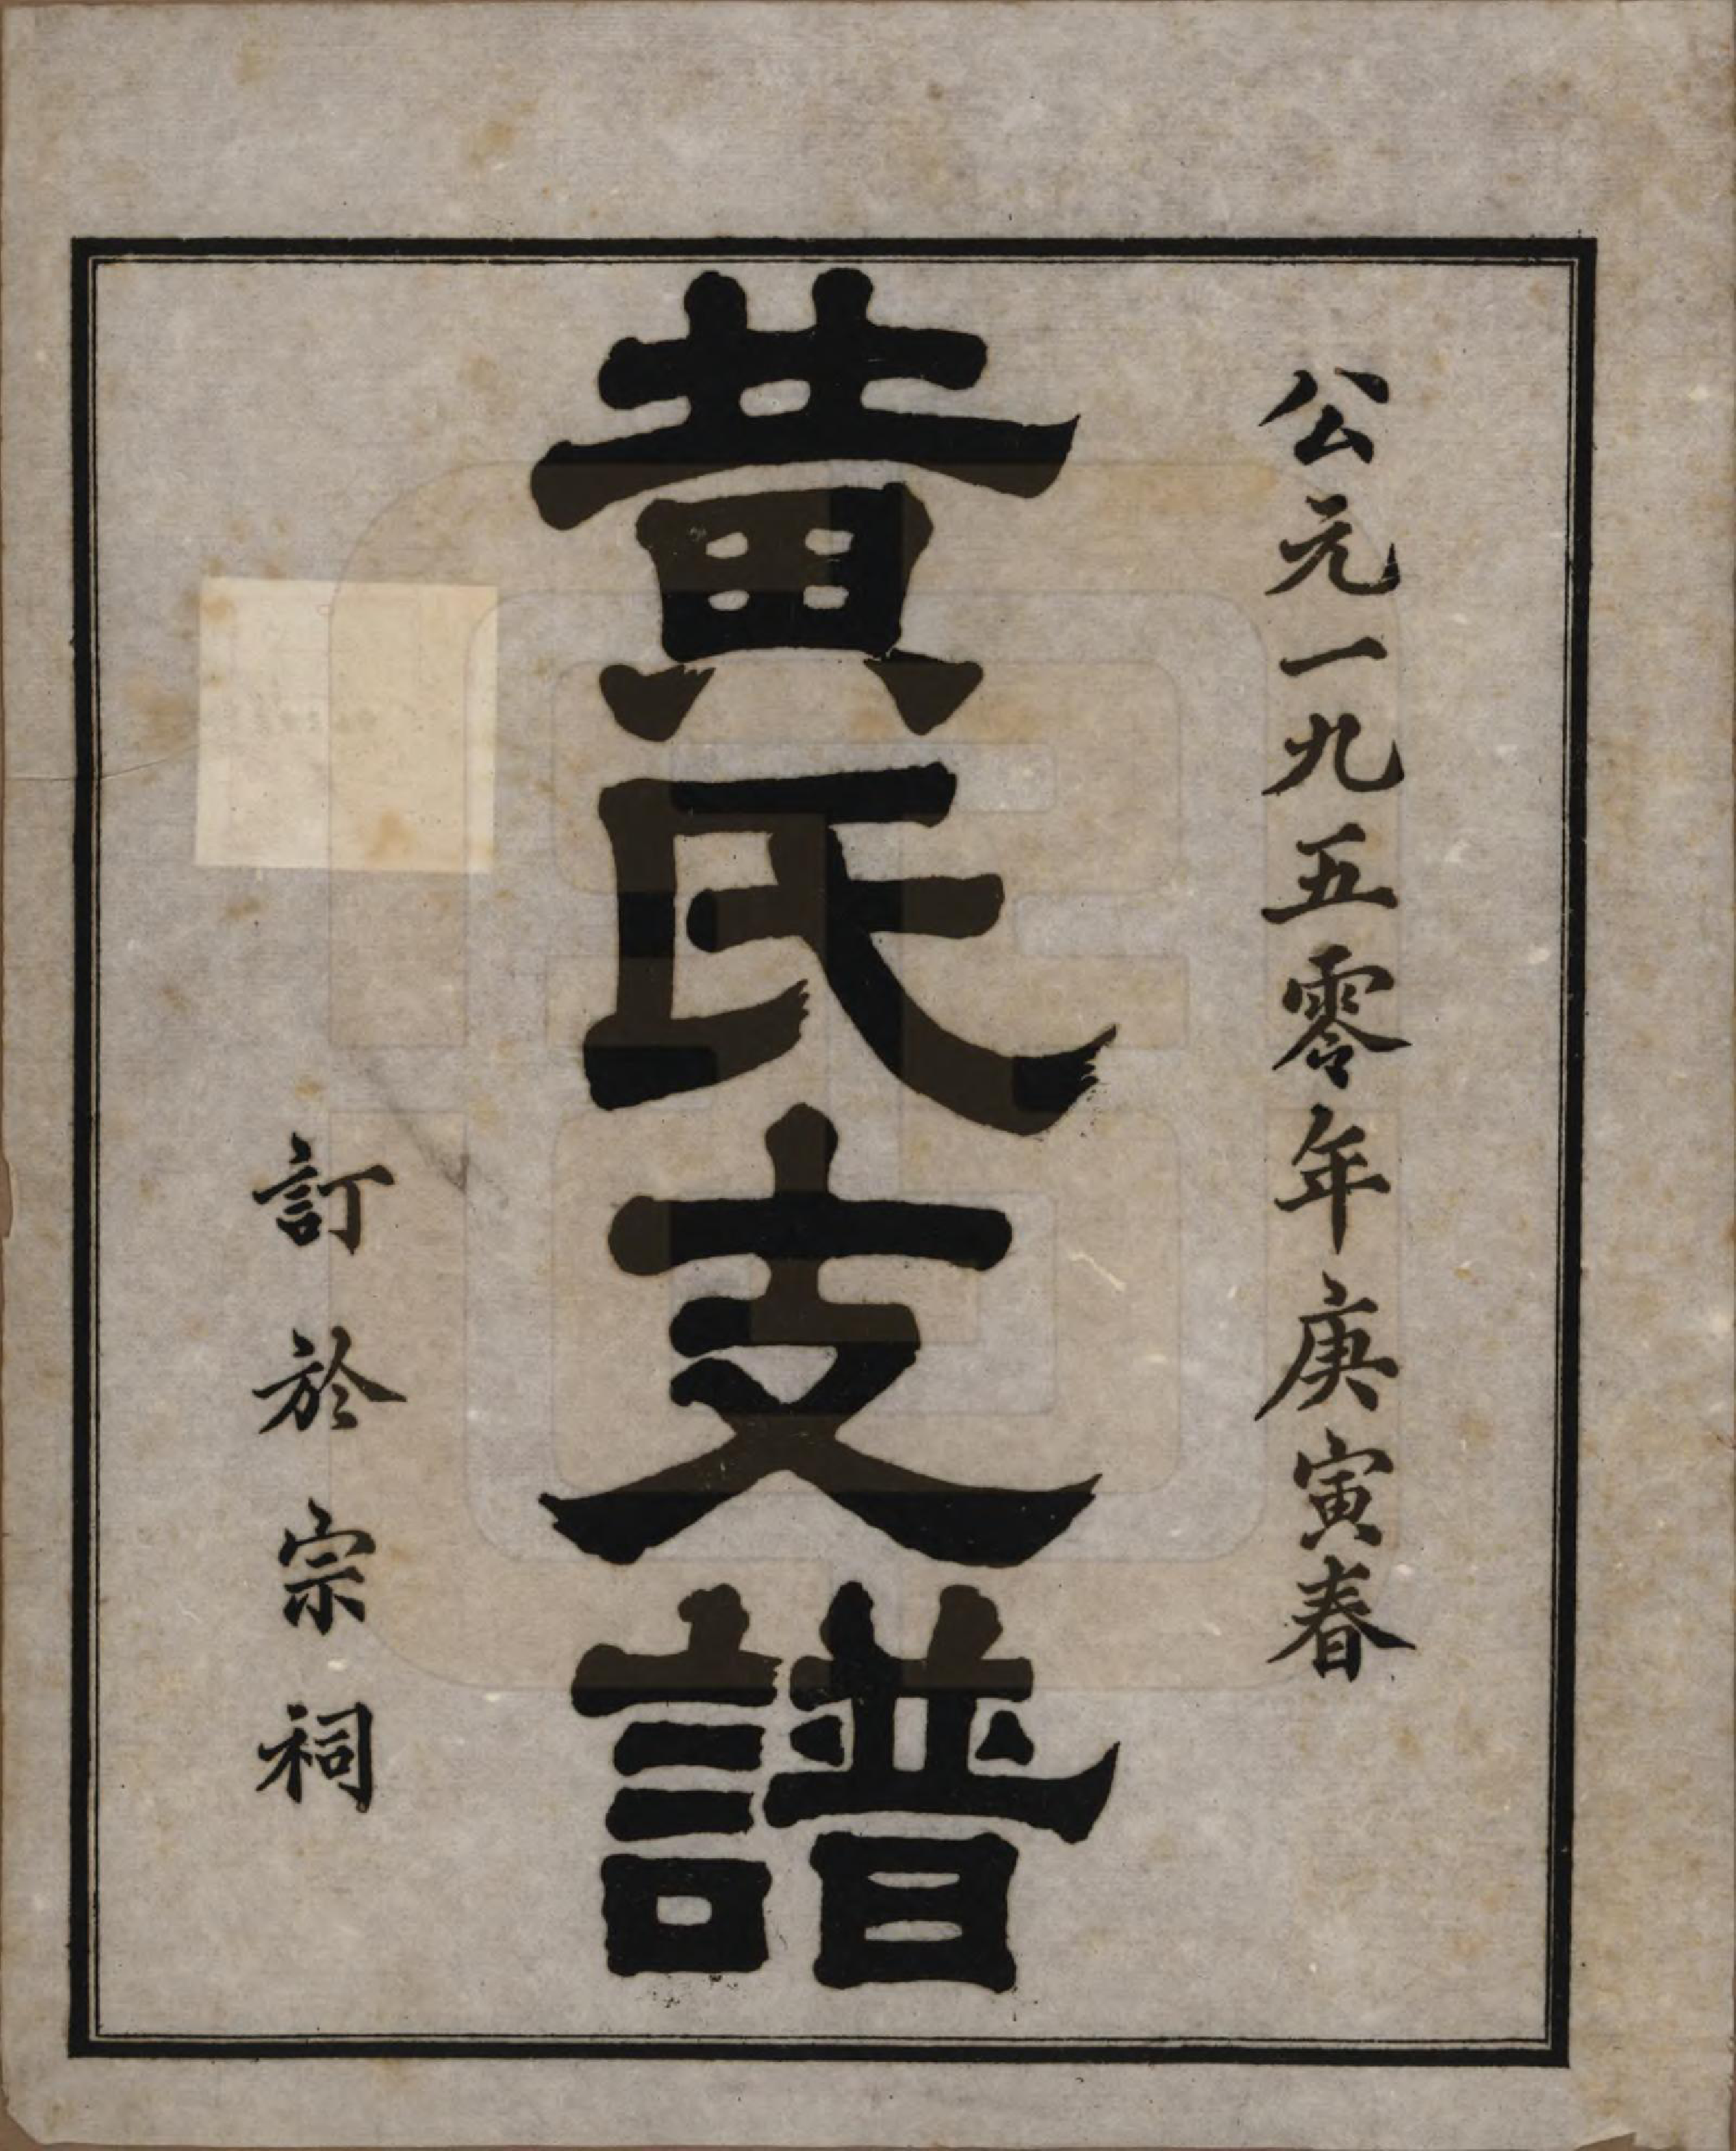 公元一九五零年庚寅春
黃氏支譜
訂於宗祠